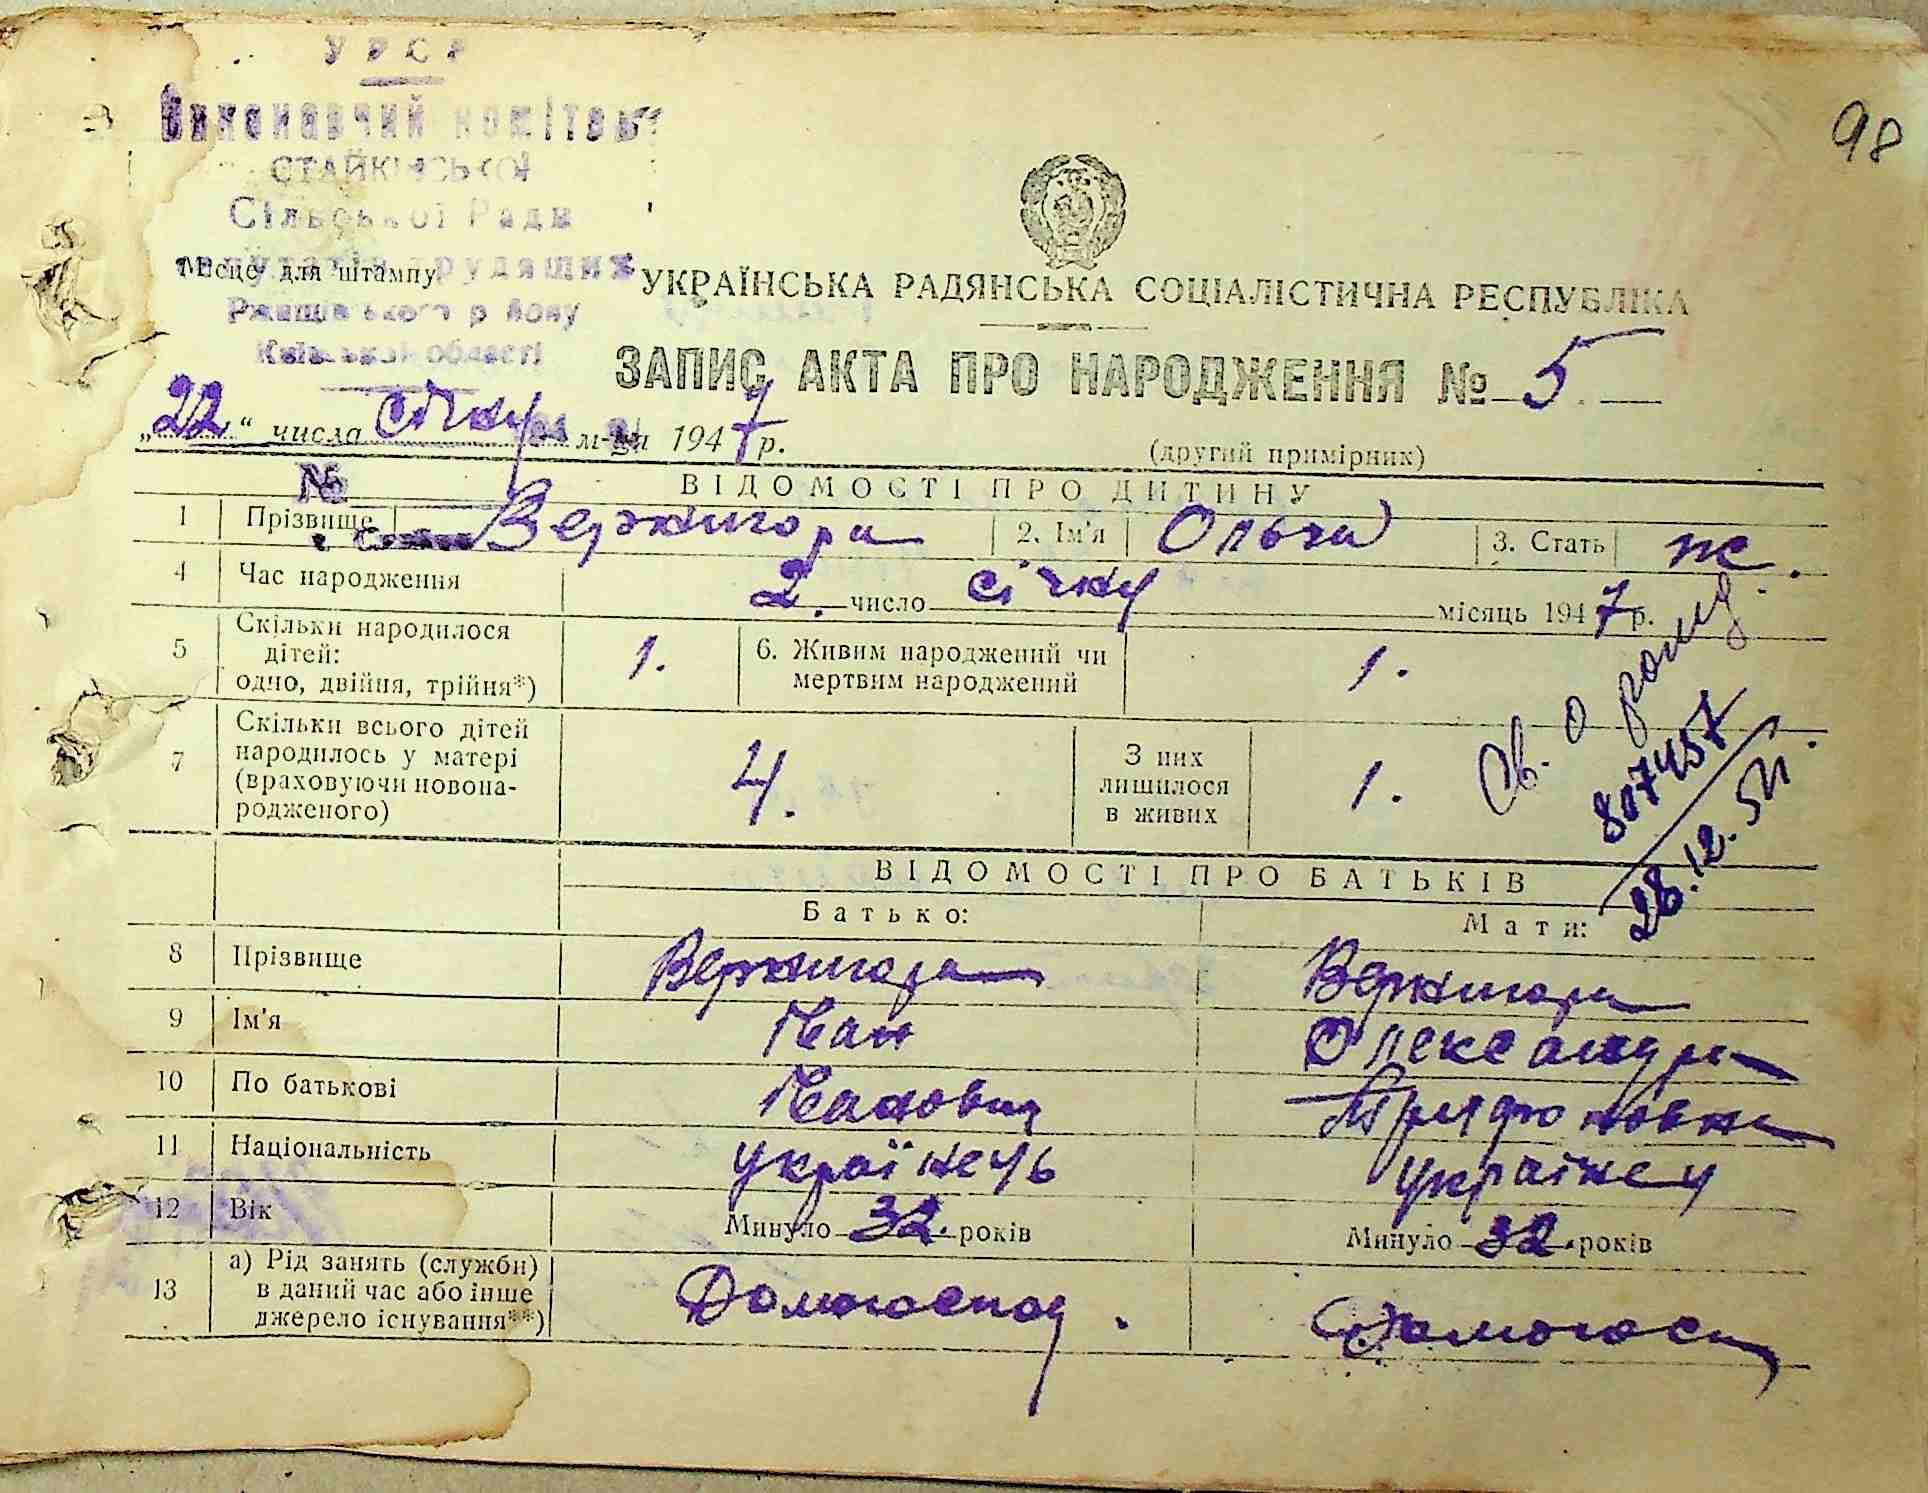 98
УРСР
Виконавчий комітет
СТАЙКІВСЬКОЇ
Сільської Ради
депутатів трудящих
Місце для штампу
Ржищівського району
Київської області
УКРАЇНСЬКА РАДЯНСЬКА СОЦІАЛІСТИЧНА РЕСПУБЛІКА
ЗАПИС АКТА ПРО НАРОДЖЕННЯ № 5.
„22“ числа січня м-ця 1947 р.
(другий примірник)
№
ВІДОМОСТІ ПРО ДИТИНУ
1 Прізвище Вернигора 2. Ім'я Ольга 3. Стать ж.
4 Час народження 2. число січня місяць 1947 р.
5 Скільки народилося дітей: одно, двійня, трійня*) 1. 6. Живим народжений чи мертвим народжений 1.
7 Скільки всього дітей народилось у матері (враховуючи новонародженого) 4. З них лишилося в живих 1.
Св. о рожд.
807457
28.12.51
ВІДОМОСТІ ПРО БАТЬКІВ
Батько: Мати:
8 Прізвище Вернигора Вернигора
9 Ім'я Іван Олександра
10 По батькові Іванович Трифоновна
11 Національність українець українка
12 Вік Минуло 32. років Минуло 32. років
13 а) Рід занять (служби) в даний час або інше джерело існування**) Домогоспод. Домогосп